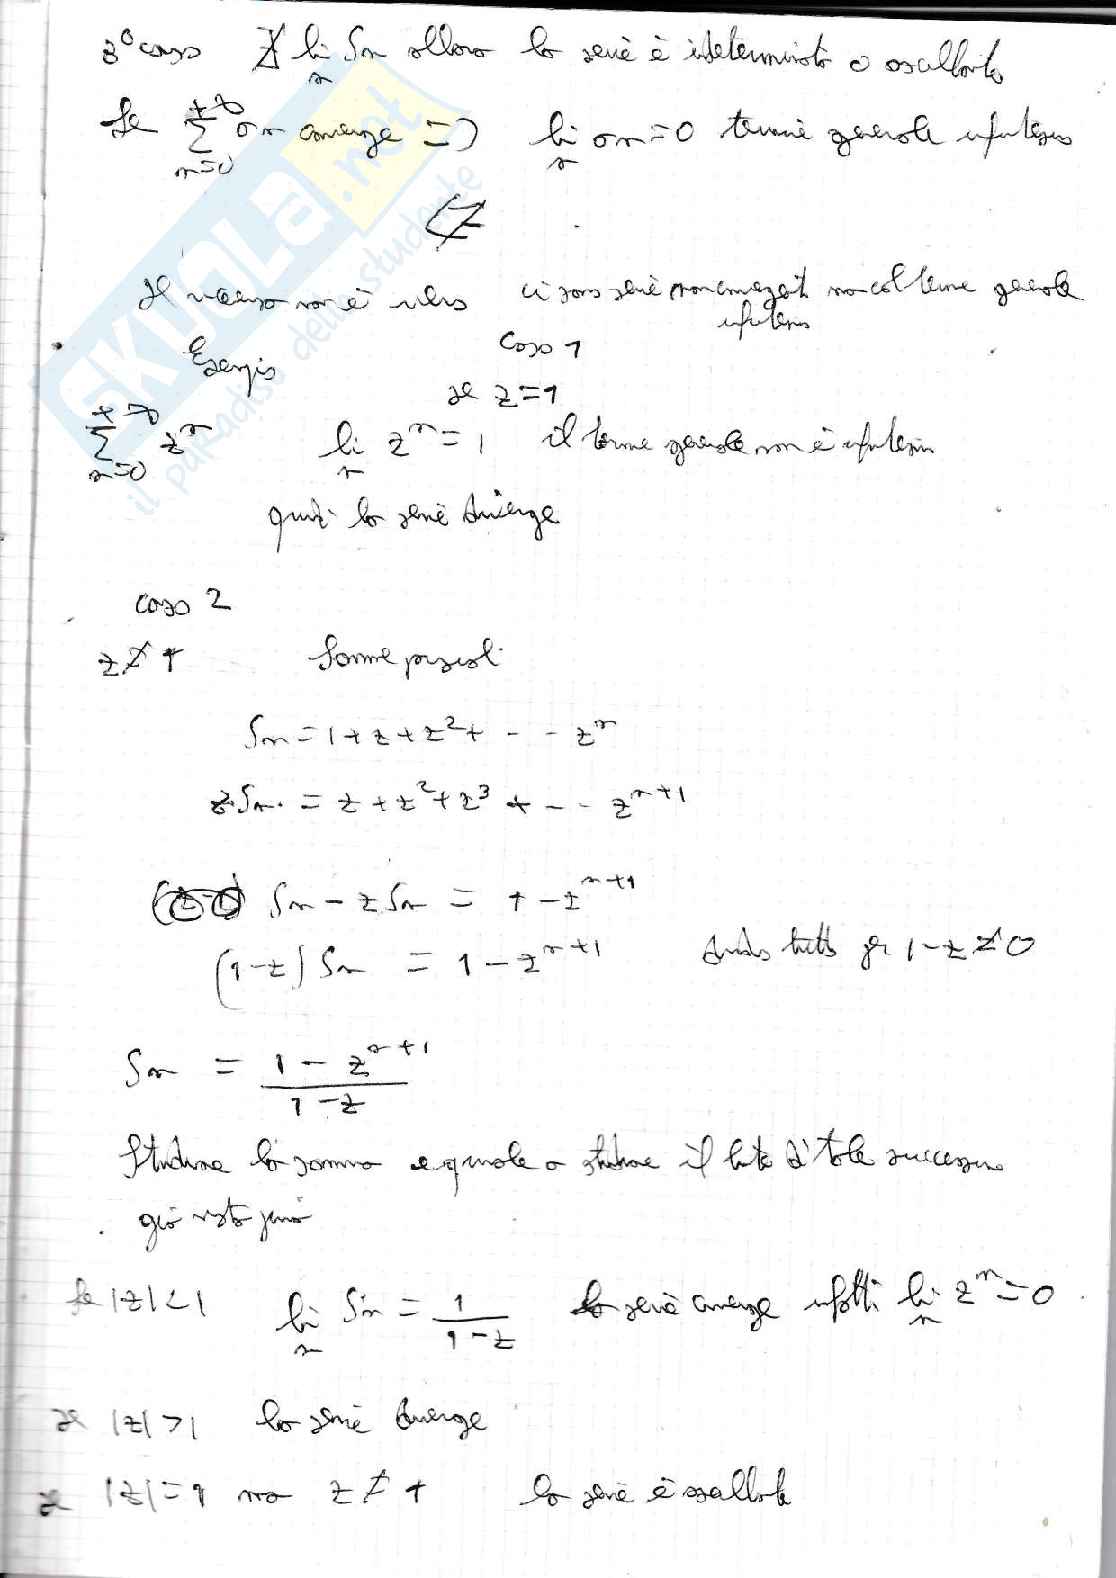 3° caso ∄ lim Sn allora la serie è indeterminata o oscillante
n
Se +∞ Σ n=0 an converge => lim n an = 0 termine generale infinitesimo
⇍
Il viceversa non è vero ci sono serie non convergenti ma col termine generale
infinitesimo
Esempio
caso 1
se z=1
+∞ Σ n=0 z^n lim n z^n = 1 il termine generale non è infinitesimo
quindi la serie diverge
caso 2
z ≠ 1 Somme parziali
Sn = 1+z+z^2+ - - z^n
z·Sn = z+z^2+z^3 + - - z^{n+1}
Sn - z Sn = 1 - z^{n+1}
(1-z) Sn = 1 - z^{n+1} divido tutto per 1-z ≠ 0
Sn = \frac{1 - z^{n+1}}{1-z}
Studiare la somma equivale a studiare il limite di tale successione
già visto prima
Se |z|<1 lim n Sn = \frac{1}{1-z} la serie converge infatti lim n z^n = 0
se |z|>1 la serie diverge
se |z|=1 ma z ≠ 1 la serie è oscillante
SKUOLA.net
il paradiso dello studente